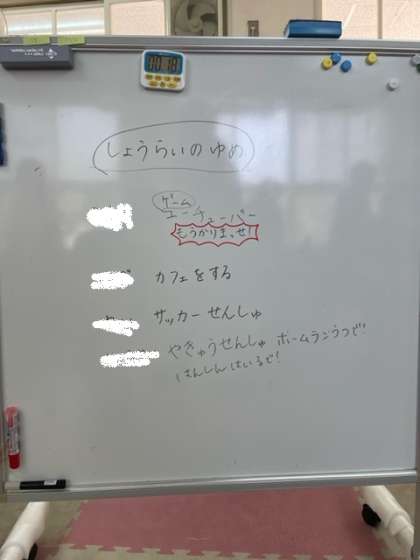 しょうらいのゆめ
ゲーム
ユーチューバー
もうかりまっせ!!
カフェをする
サッカーせんしゅ
やきゅうせんしゅ ホームランうつで!
はんしんはいるで!